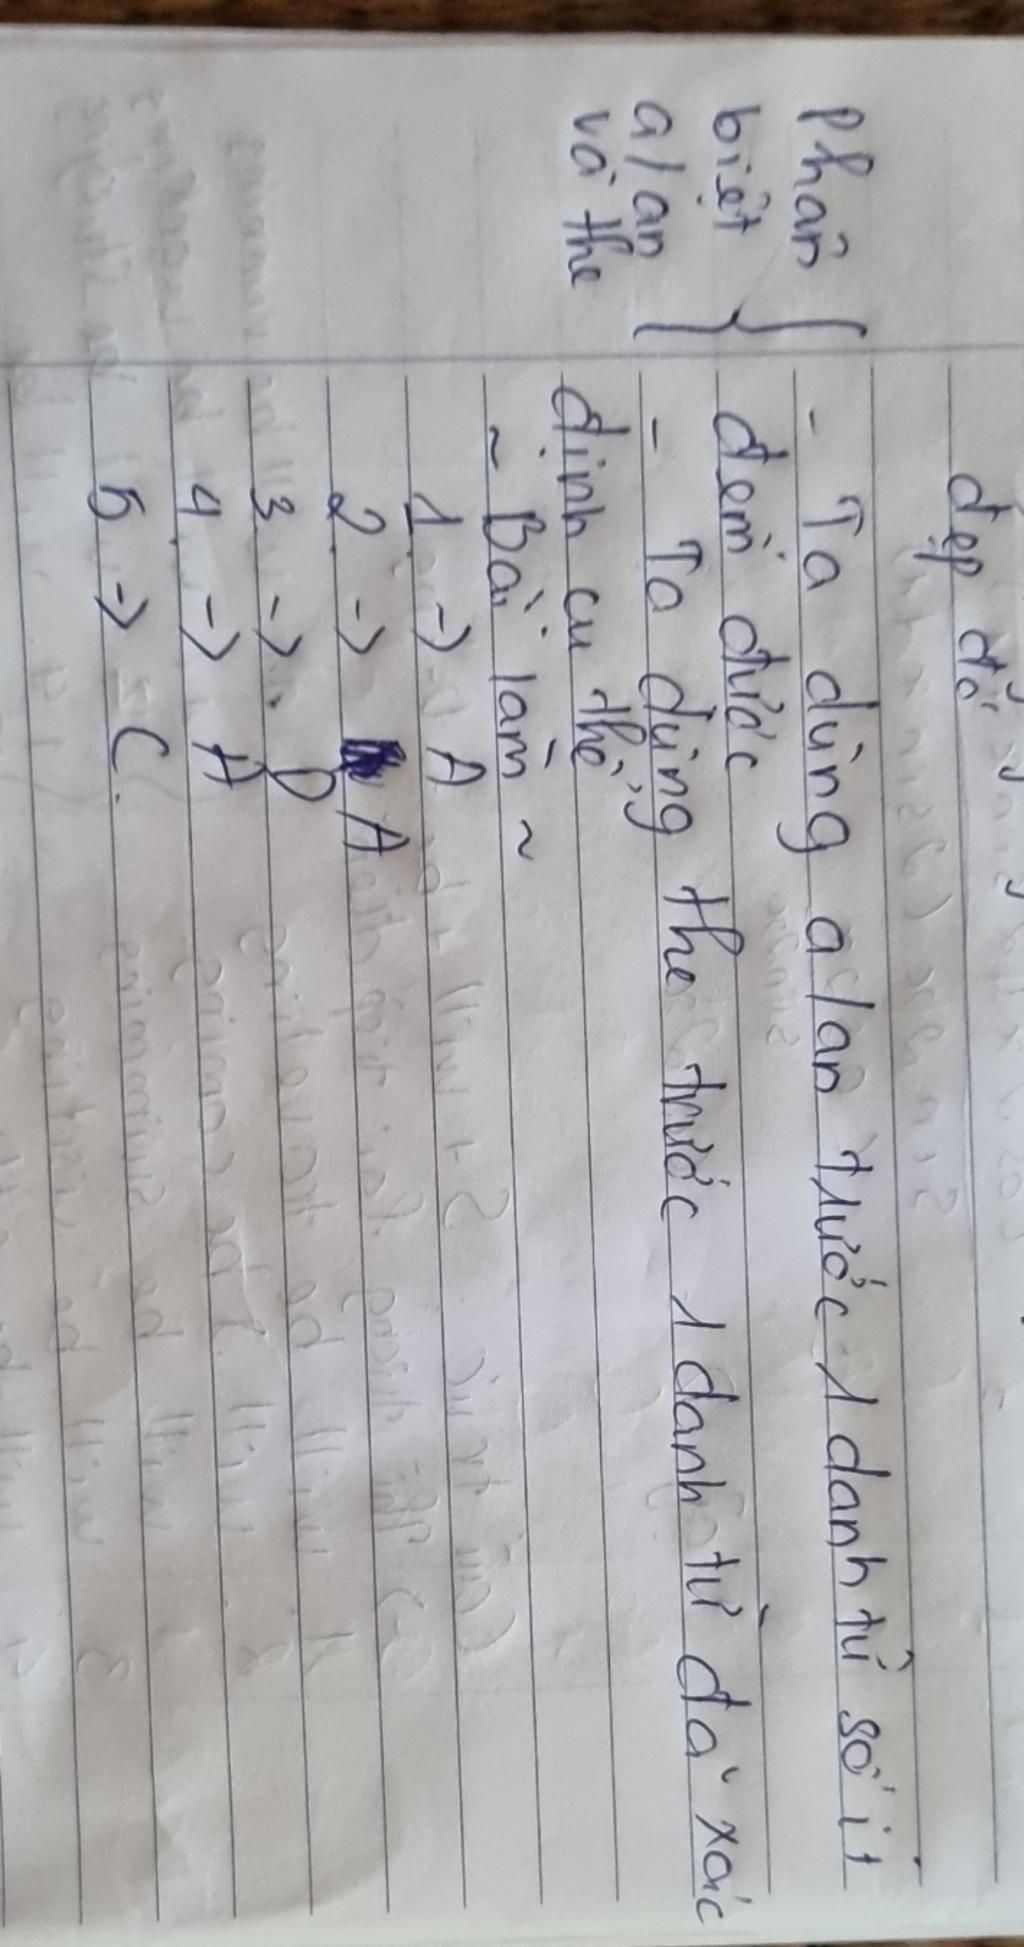 đẹp đó
Phân
biệt
a/an
và the
- Ta dùng a/an trước 1 danh từ số ít
đếm được
- Ta dùng the trước 1 danh từ đã xác
định cụ thể
~ Bài làm ~
1 -> A
2 -> A
3 -> D
4 -> A
5 -> C